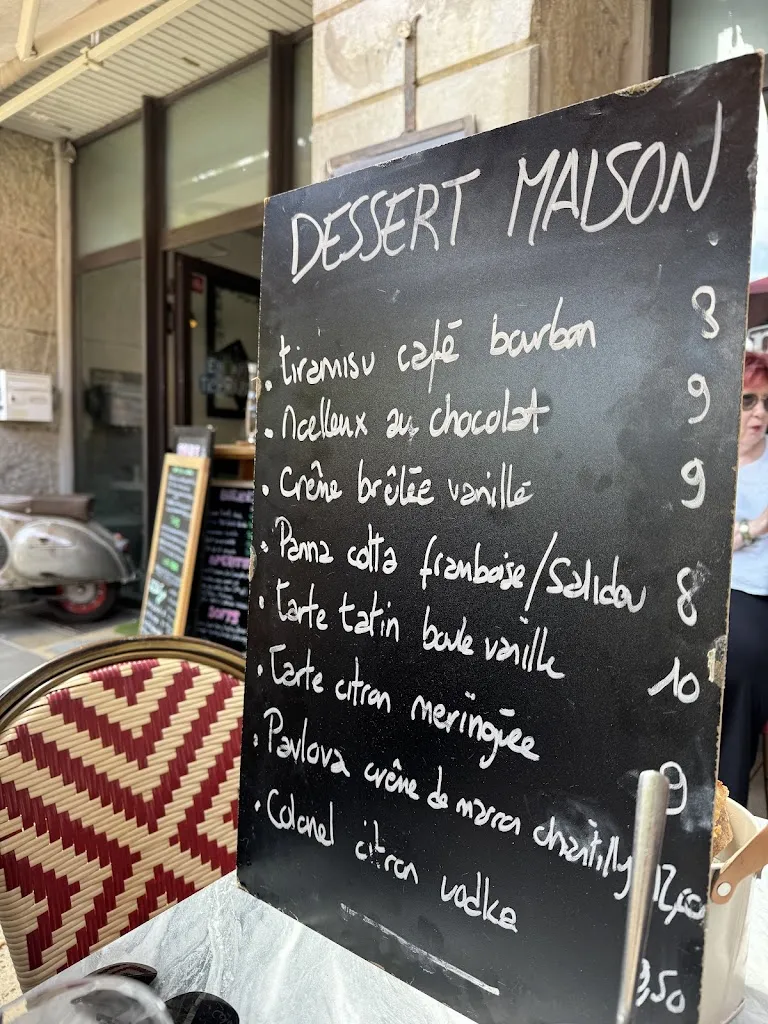 DESSERT MAISON
. tiramisu café bourbon 8
. Moelleux au chocolat 9
. Crême brûlée vanille 9
. Panna cotta framboise/Salidou 8
. tarte tatin boule vanille 10
. Tarte citron meringuée 9
. Pavlova crême de marron chantilly 12,00
. Colonel citron vodka 3,50